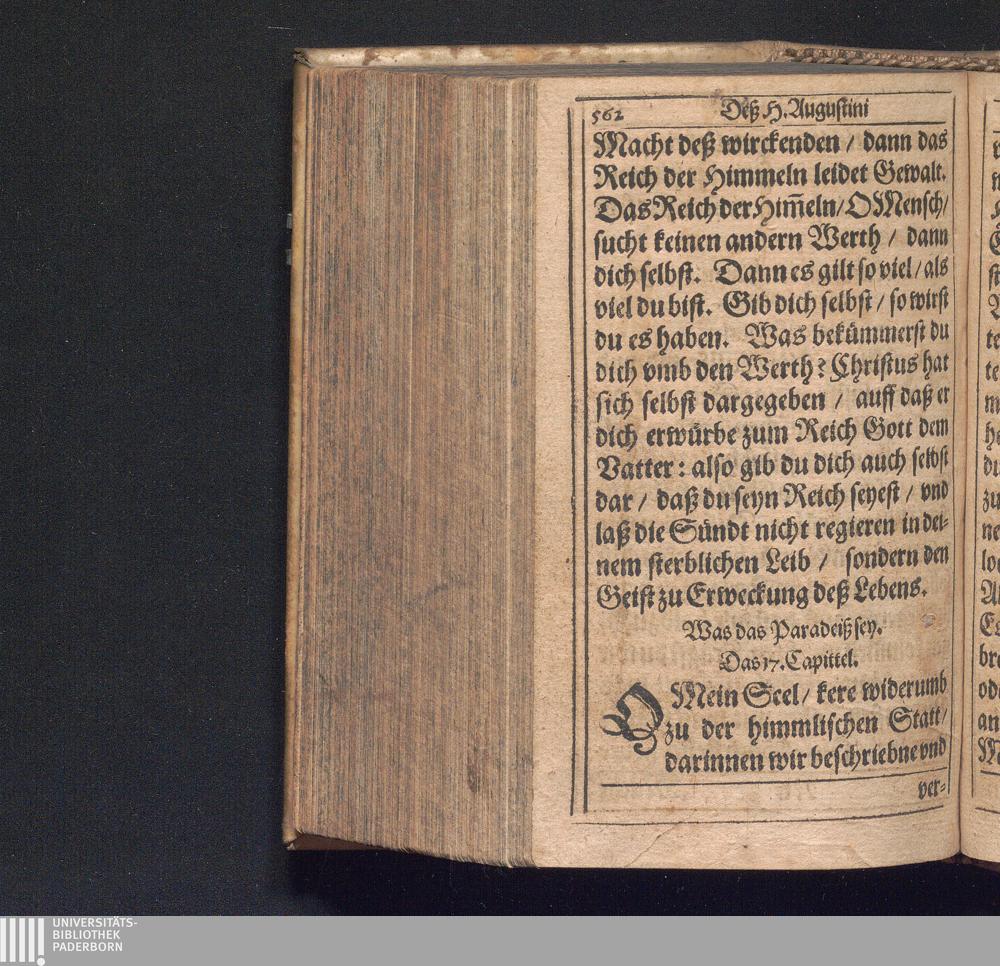 562 Deß H. Augustini
Macht deß wirckenden / dann das
Reich der Himmeln leidet Gewalt.
Das Reich der Him̄eln / O Mensch /
sucht keinen andern Werth / dann
dich selbst. Dann es gilt so viel / als
viel du bist. Gib dich selbst / so wirst
du es haben. Was bekümmerst du
dich vmb den Werth? Christus hat
sich selbst dargegeben / auff daß er
dich erwürbe zum Reich Gott dem
Vatter: also gib du dich auch selbst
dar / daß du seyn Reich seyest / vnd
laß die Sündt nicht regieren in dei-
nem sterblichen Leib / sondern den
Geist zu Erweckung deß Lebens.
Was das Paradeiß sey.
Das 17. Capittel.
O Mein Seel / kere widerumb
zu der himmlischen Statt /
darinnen wir beschriebne vnd
ver-
UNIVERSITÄTS-
BIBLIOTHEK
PADERBORN